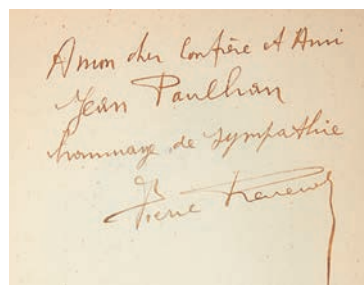 A mon cher Confrère et Ami
Jean Paulhan
hommage de sympathie
Pierre